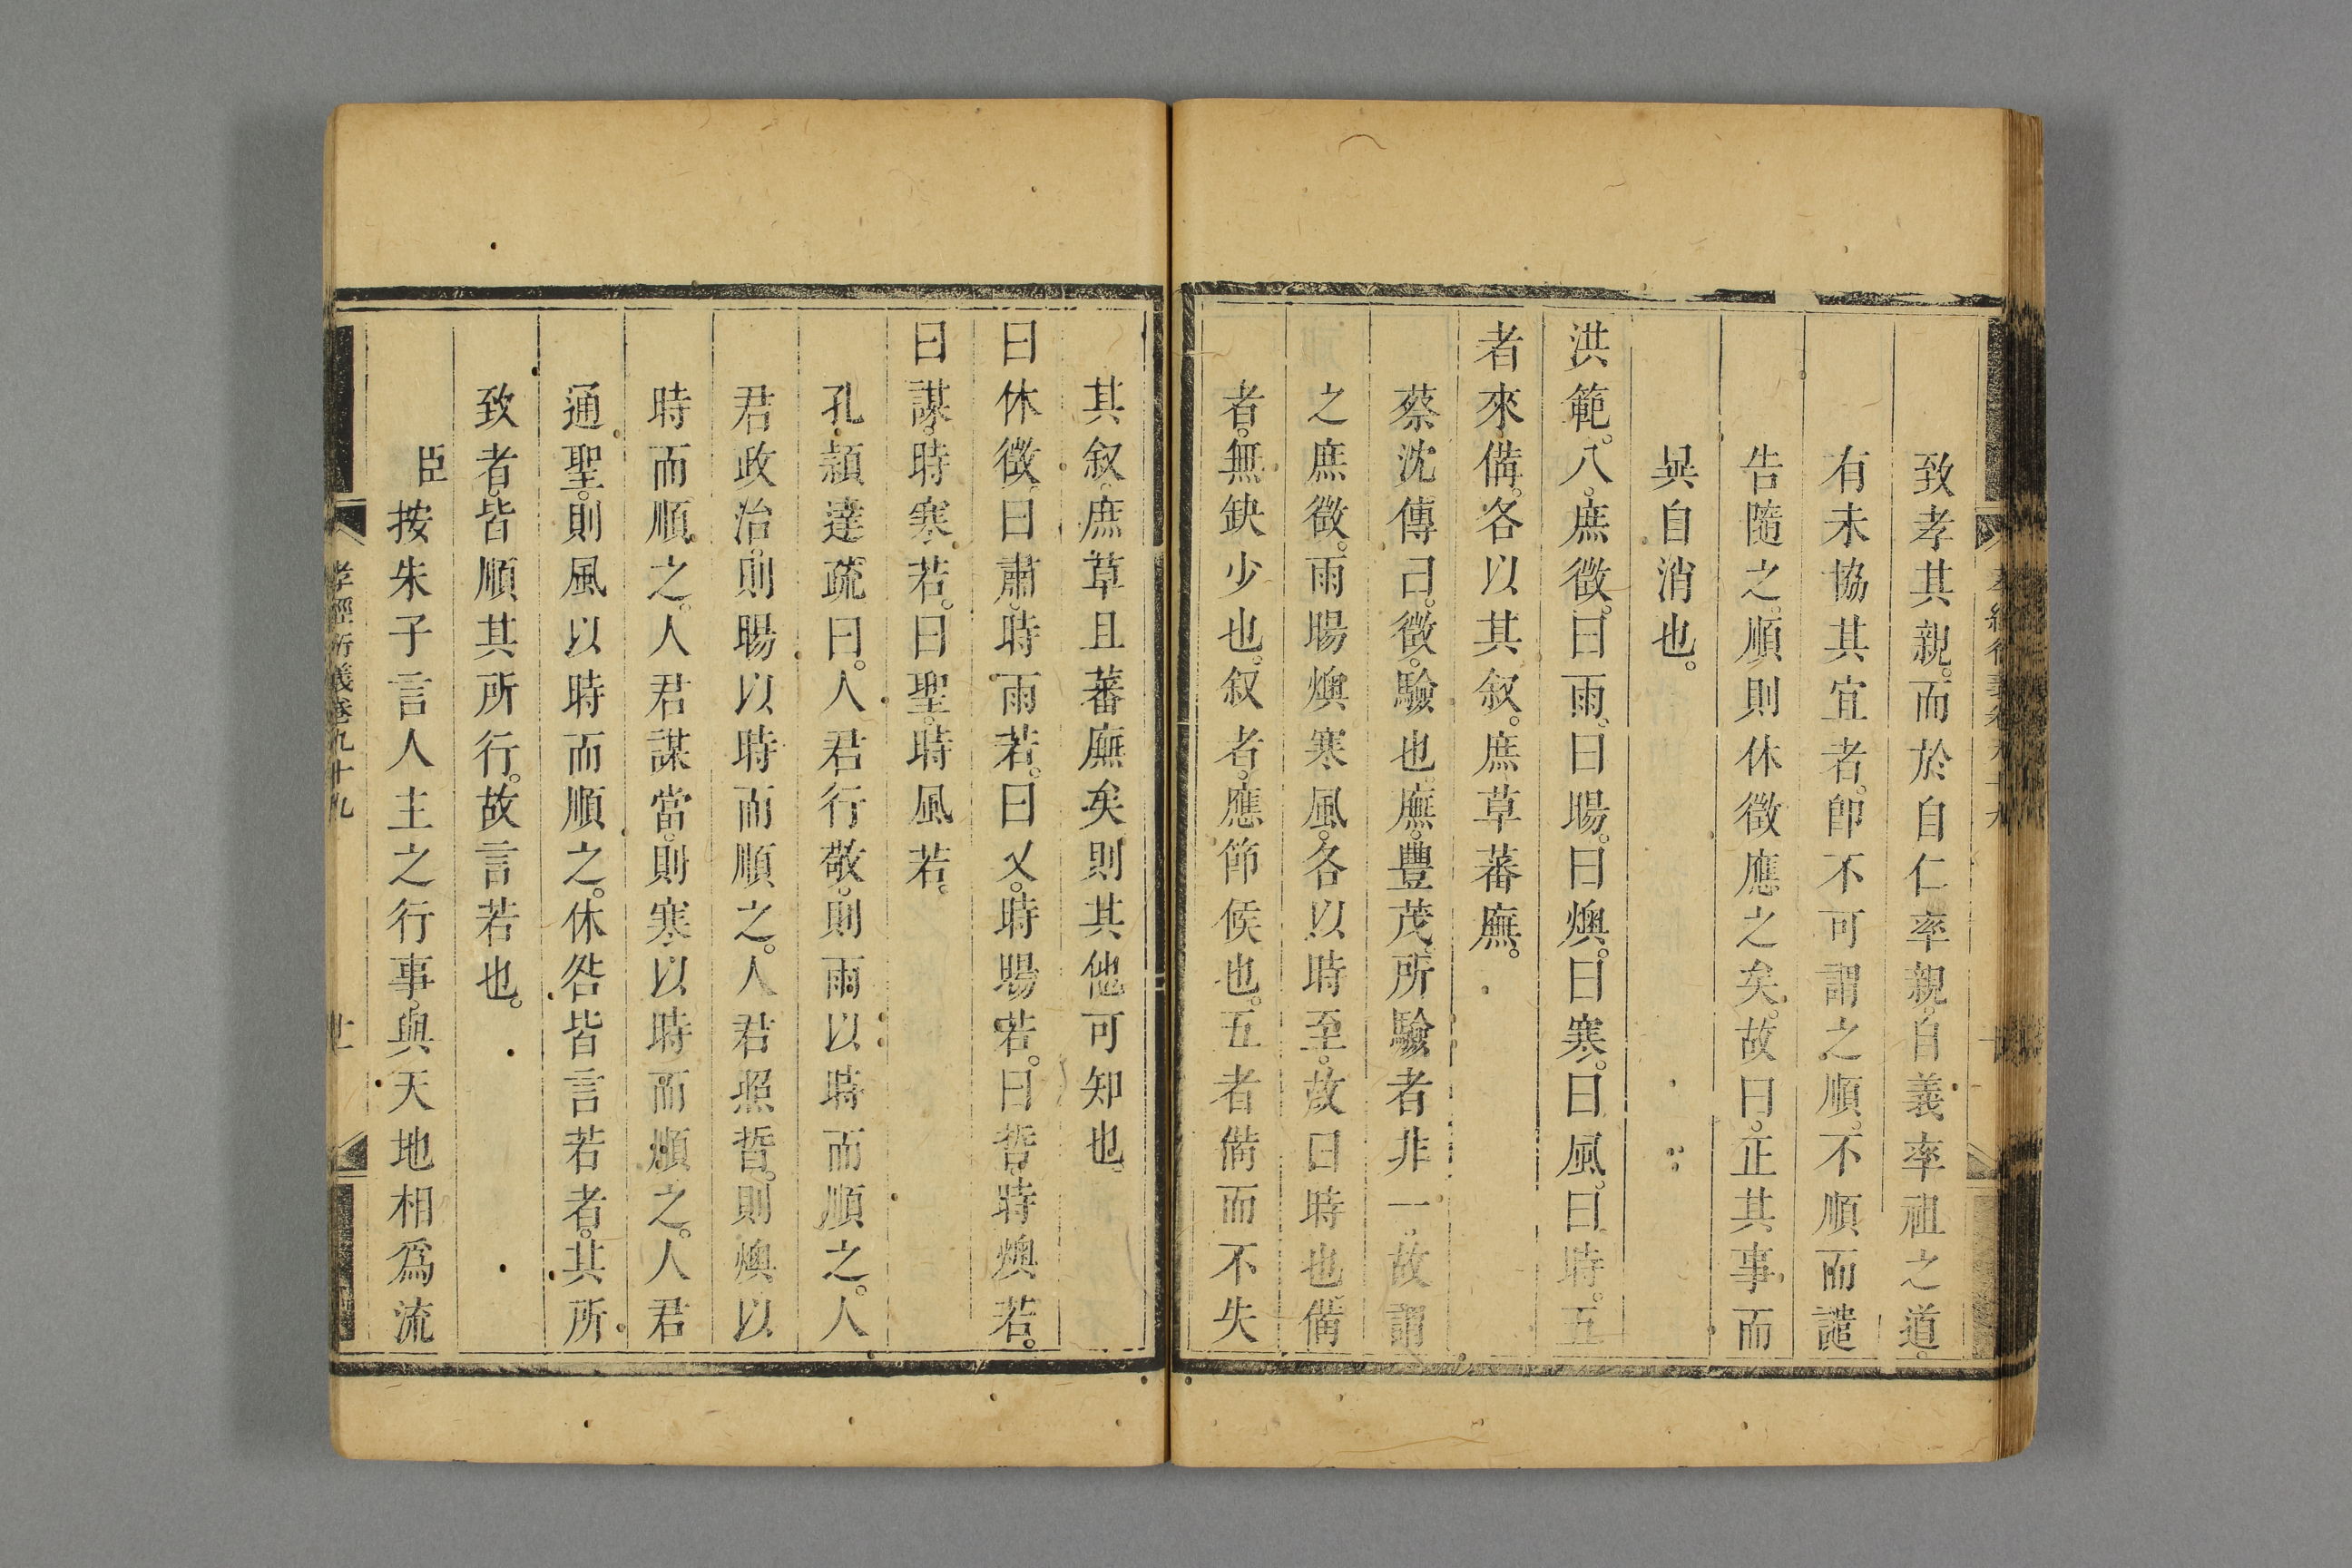 致孝其親。而於自仁率親。自義率祖之道。
有未協其宜者。卽不可謂之順。不順而譴
告隨之。順則休徵應之矣。故曰。正其事而
吳自消也。
洪範。八。庶徵。曰雨。曰暘。曰燠。曰寒。曰風。曰時。五
者來備。各以其叙。庶草蕃廡。
蔡沈傳曰。徵。驗也。廡。豐茂。所驗者非一。故謂
之庶徵。雨暘燠寒風。各以時至。故曰時也。備
者。無缺少也。叙者。應節候也。五者備而不失
其叙。庶草且蕃廡矣。則其他可知也。
曰休徵。曰肅。時雨若。曰乂。時暘若。曰晢。時燠若。
曰謀。時寒若。曰聖。時風若。
孔穎達疏曰。人君行敬。則雨以時而順之。人
君政治。則暘以時而順之。人君照晢。則燠以
時而順之。人君謀當。則寒以時而順之。人君
通聖。則風以時而順之。休咎皆言若者。其所
致者。皆順其所行。故言若也。
臣按朱子言人主之行事。與天地相爲流
孝經衍義卷九十九